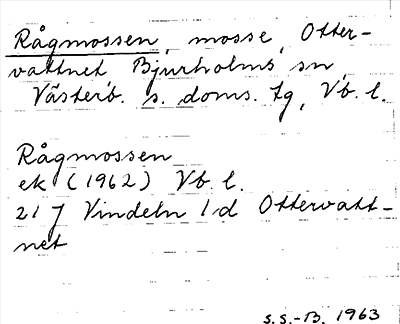 Rågmossen, mosse, Otter-
vattnet Bjurholms sn,
Västerb. s. doms. tg, Vb. l.
Rågmossen
ek (1962) Vb. l.
21 J Vindeln 1 d Ottervatt-
net
S.S.-B. 1963